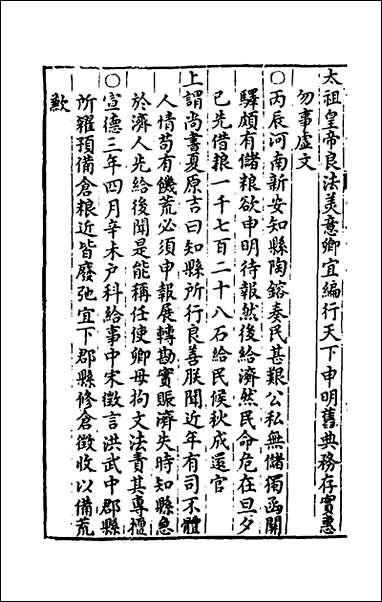 太祖皇帝良法美意卿宜編行天下申明舊典務存實惠
勿事虚文
○丙辰河南新安知縣陶鎔奏民甚艱公私無儲獨函關
驛頗有儲粮欲申明待報然後給濟然民命危在旦夕
已先借粮一千七百二十八石給民候秋成還官
上謂尚書夏原吉曰知縣所行良善朕聞近年有司不體
人情苟有饑荒必須申報展轉勘實賑濟失時知縣急
於濟人先給後聞是能稱任使卿毋拘文法責其專擅
○宣德三年四月辛未戸科給事中宋徵言洪武中郡縣
所糴預備倉粮近皆廢弛宜下郡縣修倉徵收以備荒
歉